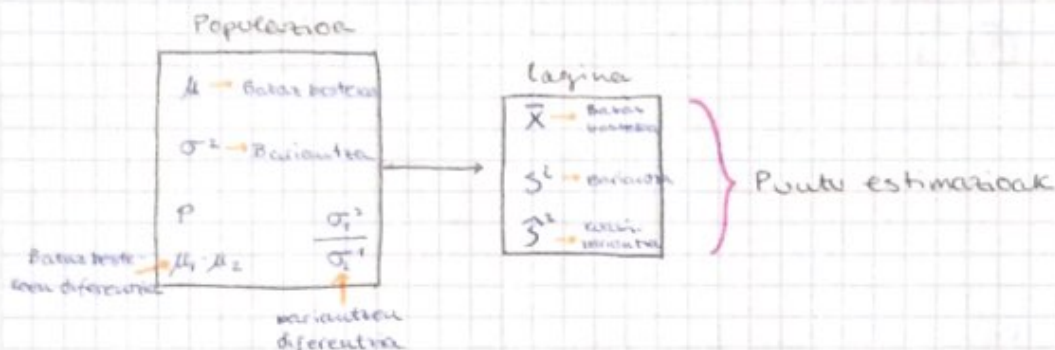 Populazioa
μ → Batez bestekoa
σ² → Bariantza
P
σ₁²
σ₂²
Batez beste-
koen diferentzia → μ₁ - μ₂
bariantzen
diferentzia
lagina
X̄ → Batez
bestekoa
S² → Bariantza
Ŝ² →
Puntu estimazioak